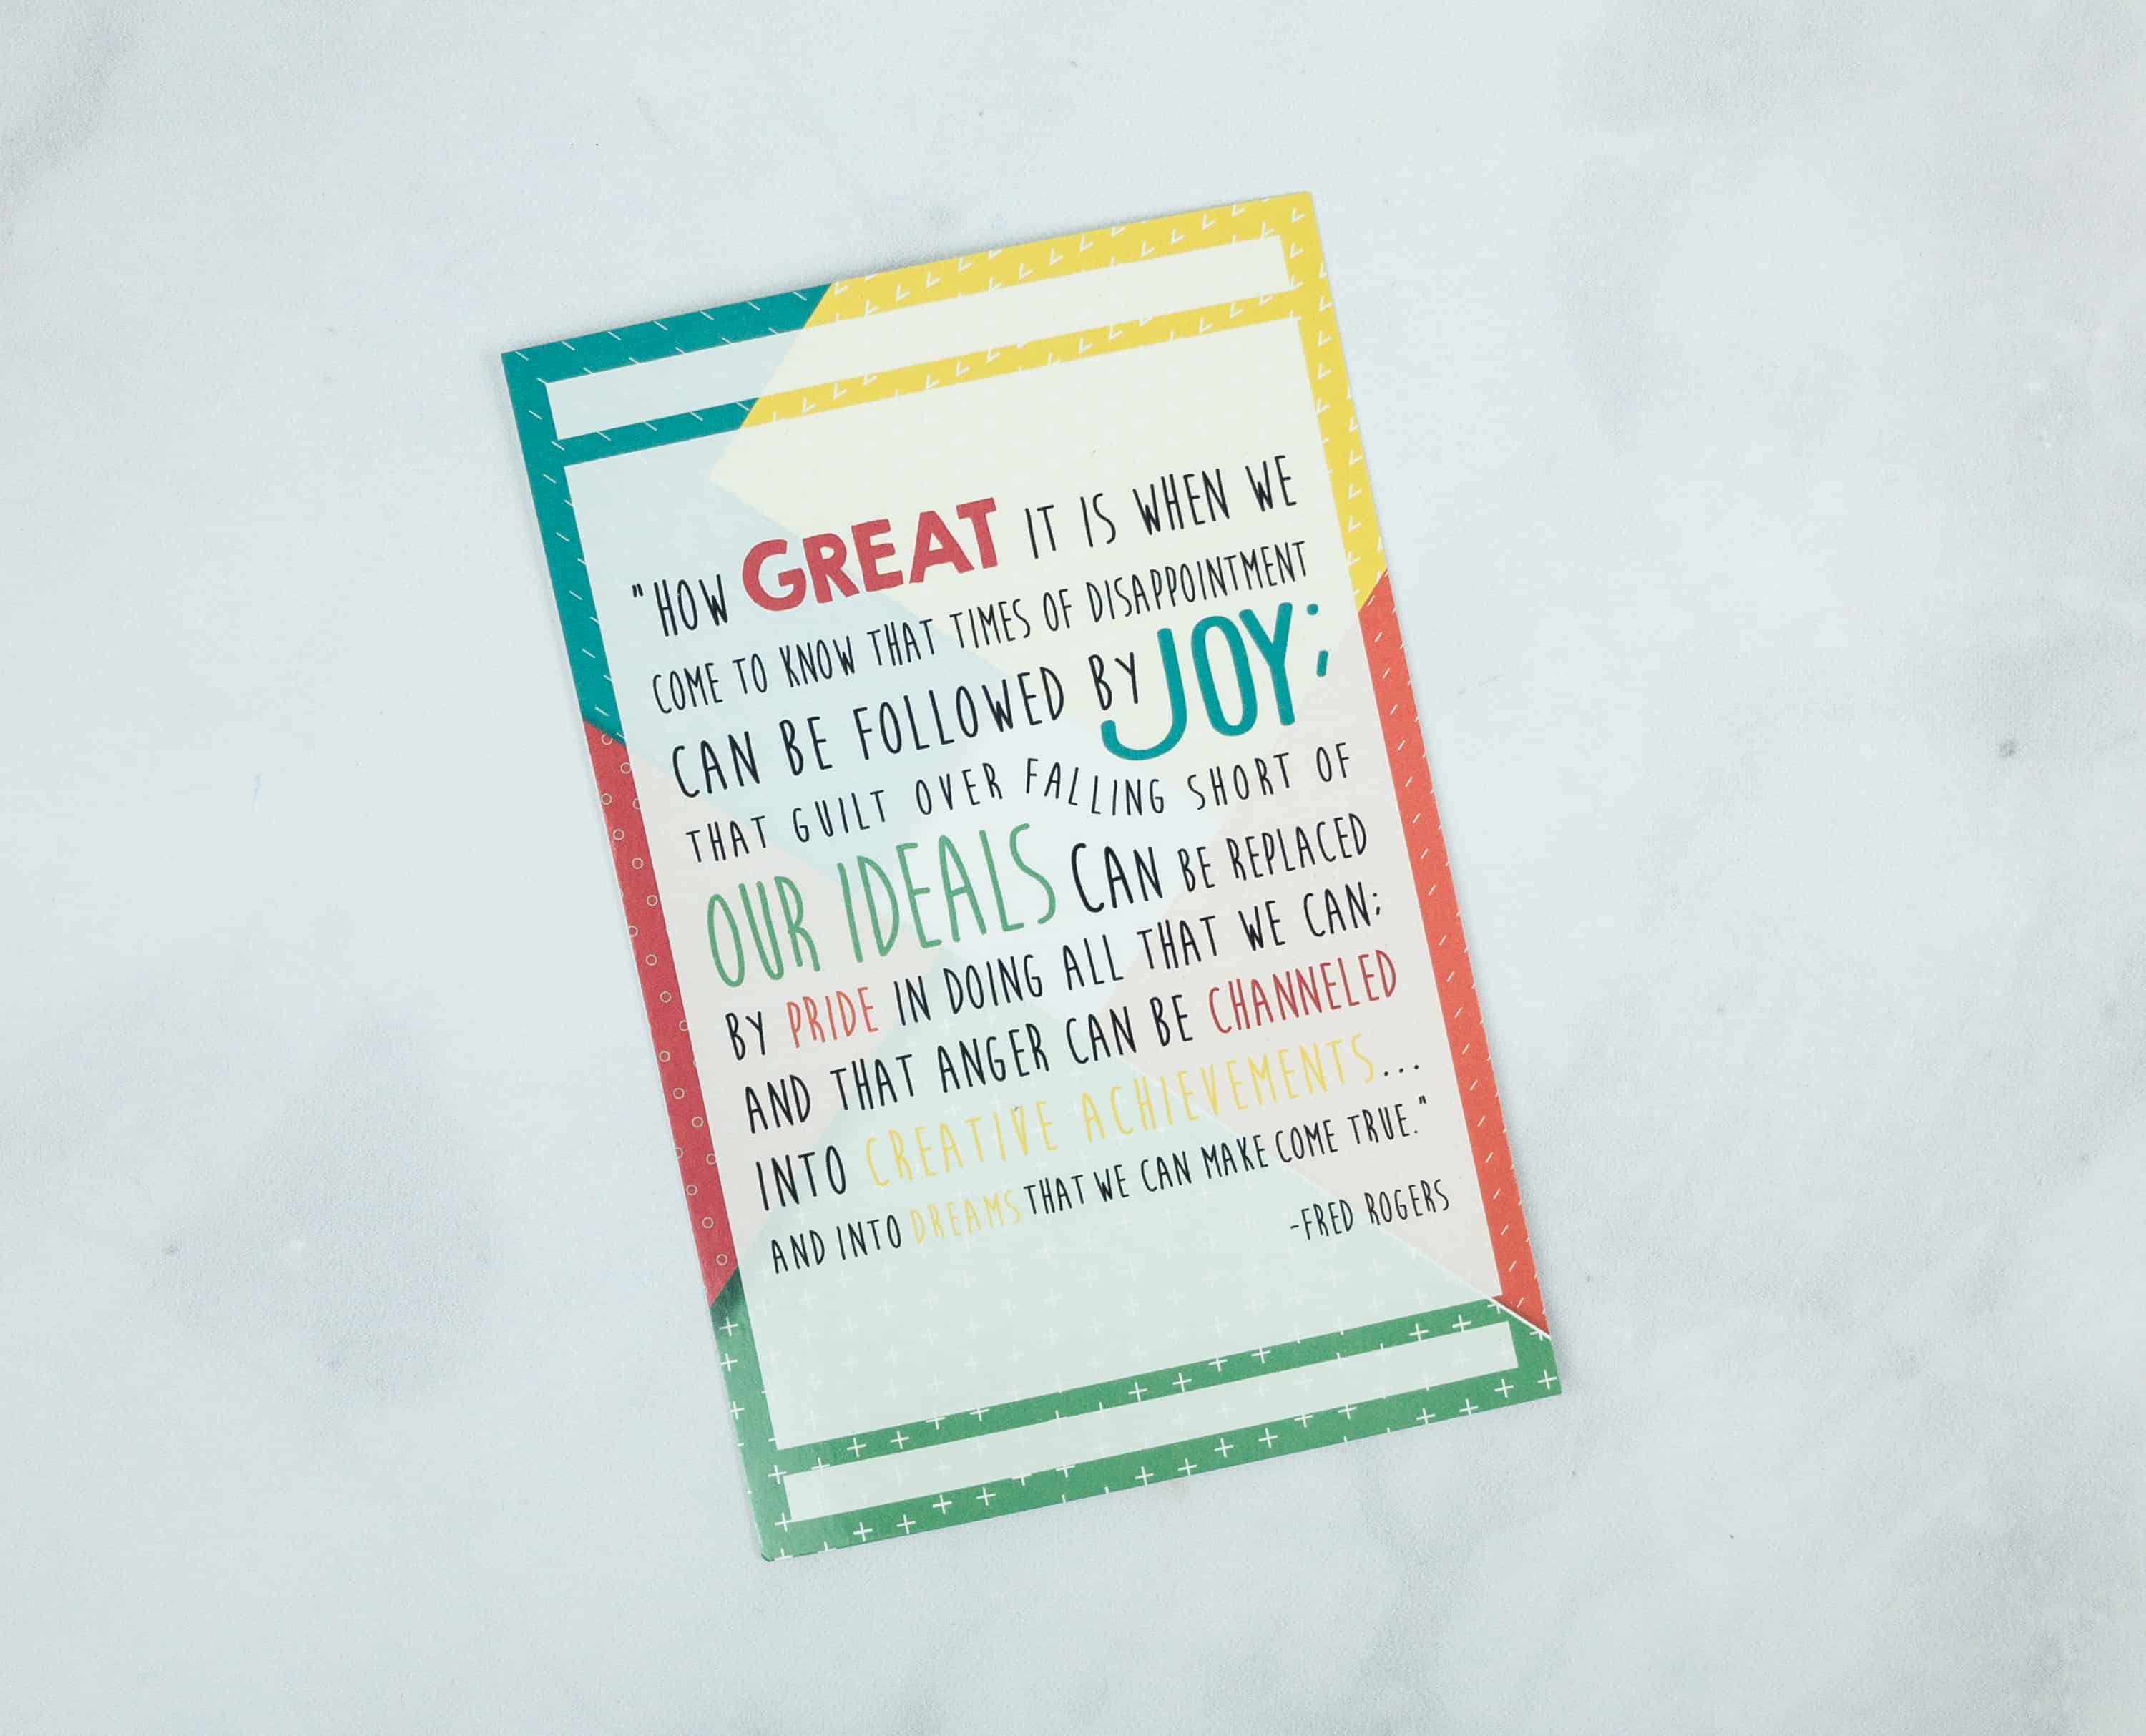 "HOW GREAT IT IS WHEN WE
COME TO KNOW THAT TIMES OF DISAPPOINTMENT
CAN BE FOLLOWED BY JOY;
THAT GUILT OVER FALLING SHORT OF
OUR IDEALS CAN BE REPLACED
BY PRIDE IN DOING ALL THAT WE CAN;
AND THAT ANGER CAN BE CHANNELED
INTO CREATIVE ACHIEVEMENTS...
AND INTO DREAMS THAT WE CAN MAKE COME TRUE."
-FRED ROGERS